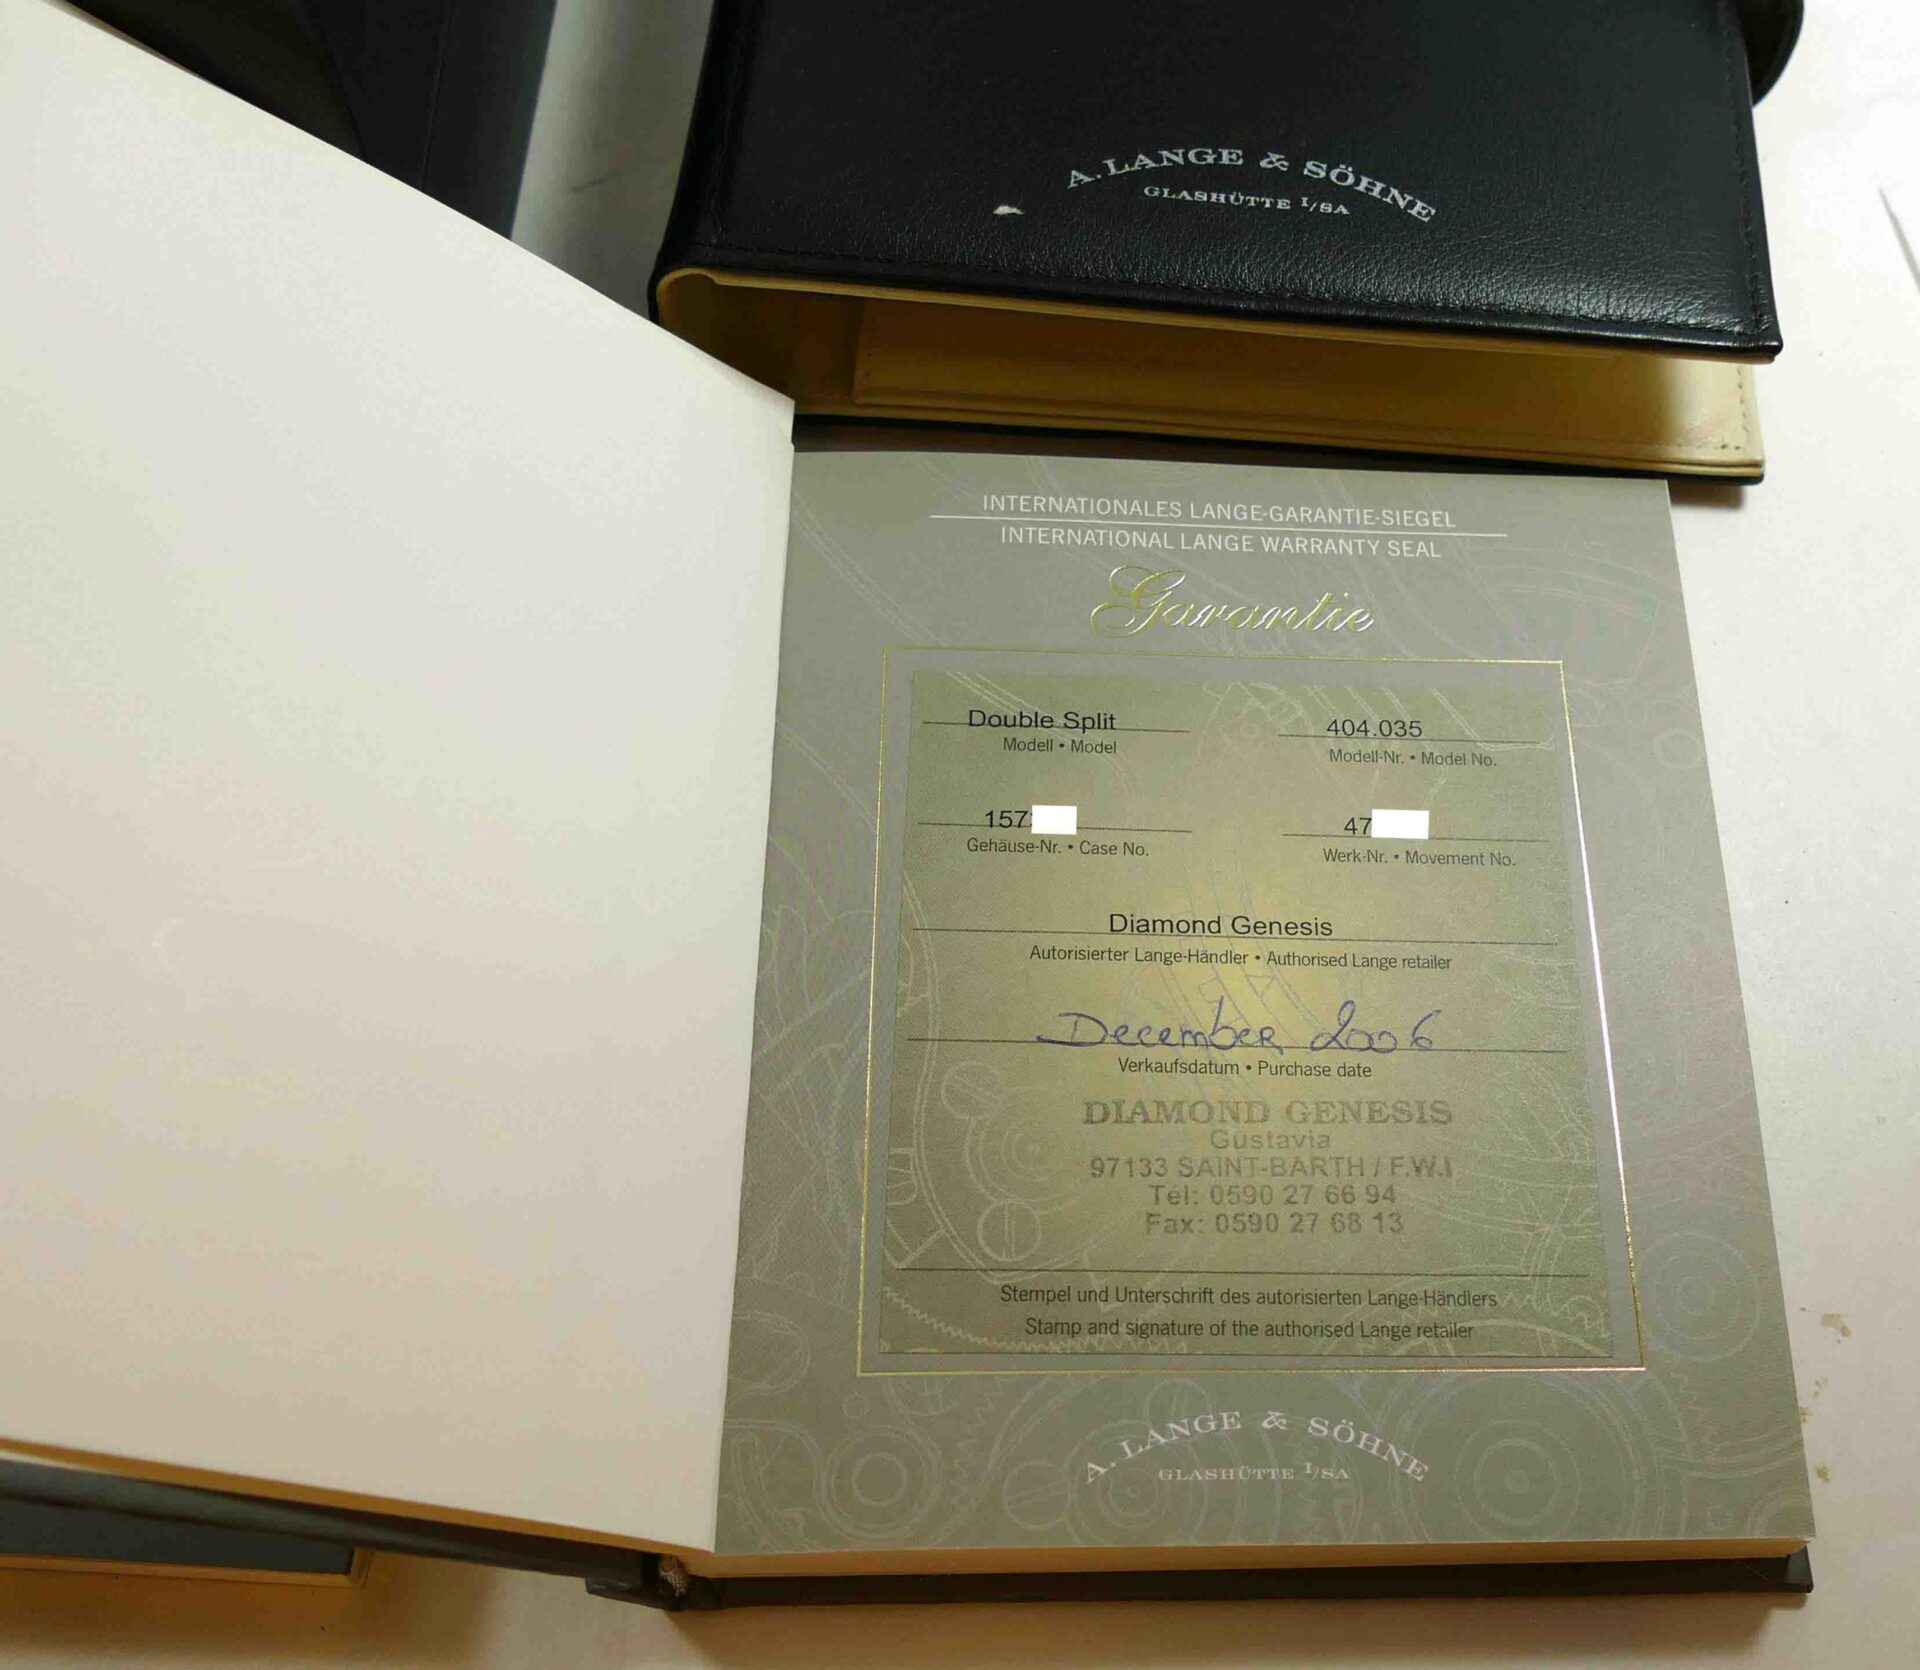 A. LANGE & SÖHNE
GLASHÜTTE I/SA
INTERNATIONALES LANGE-GARANTIE-SIEGEL
INTERNATIONAL LANGE WARRANTY SEAL
Garantie
Double Split 404.035
Modell • Model Modell-Nr. • Model No.
157 47
Gehäuse-Nr. • Case No. Werk-Nr. • Movement No.
Diamond Genesis
Autorisierter Lange-Händler • Authorised Lange retailer
December 2006
Verkaufsdatum • Purchase date
DIAMOND GENESIS
Gustavia
97133 SAINT-BARTH / F.W.I
Tél: 0590 27 66 94
Fax: 0590 27 68 13
Stempel und Unterschrift des autorisierten Lange-Händlers
Stamp and signature of the authorised Lange retailer
A. LANGE & SÖHNE
GLASHÜTTE I/SA